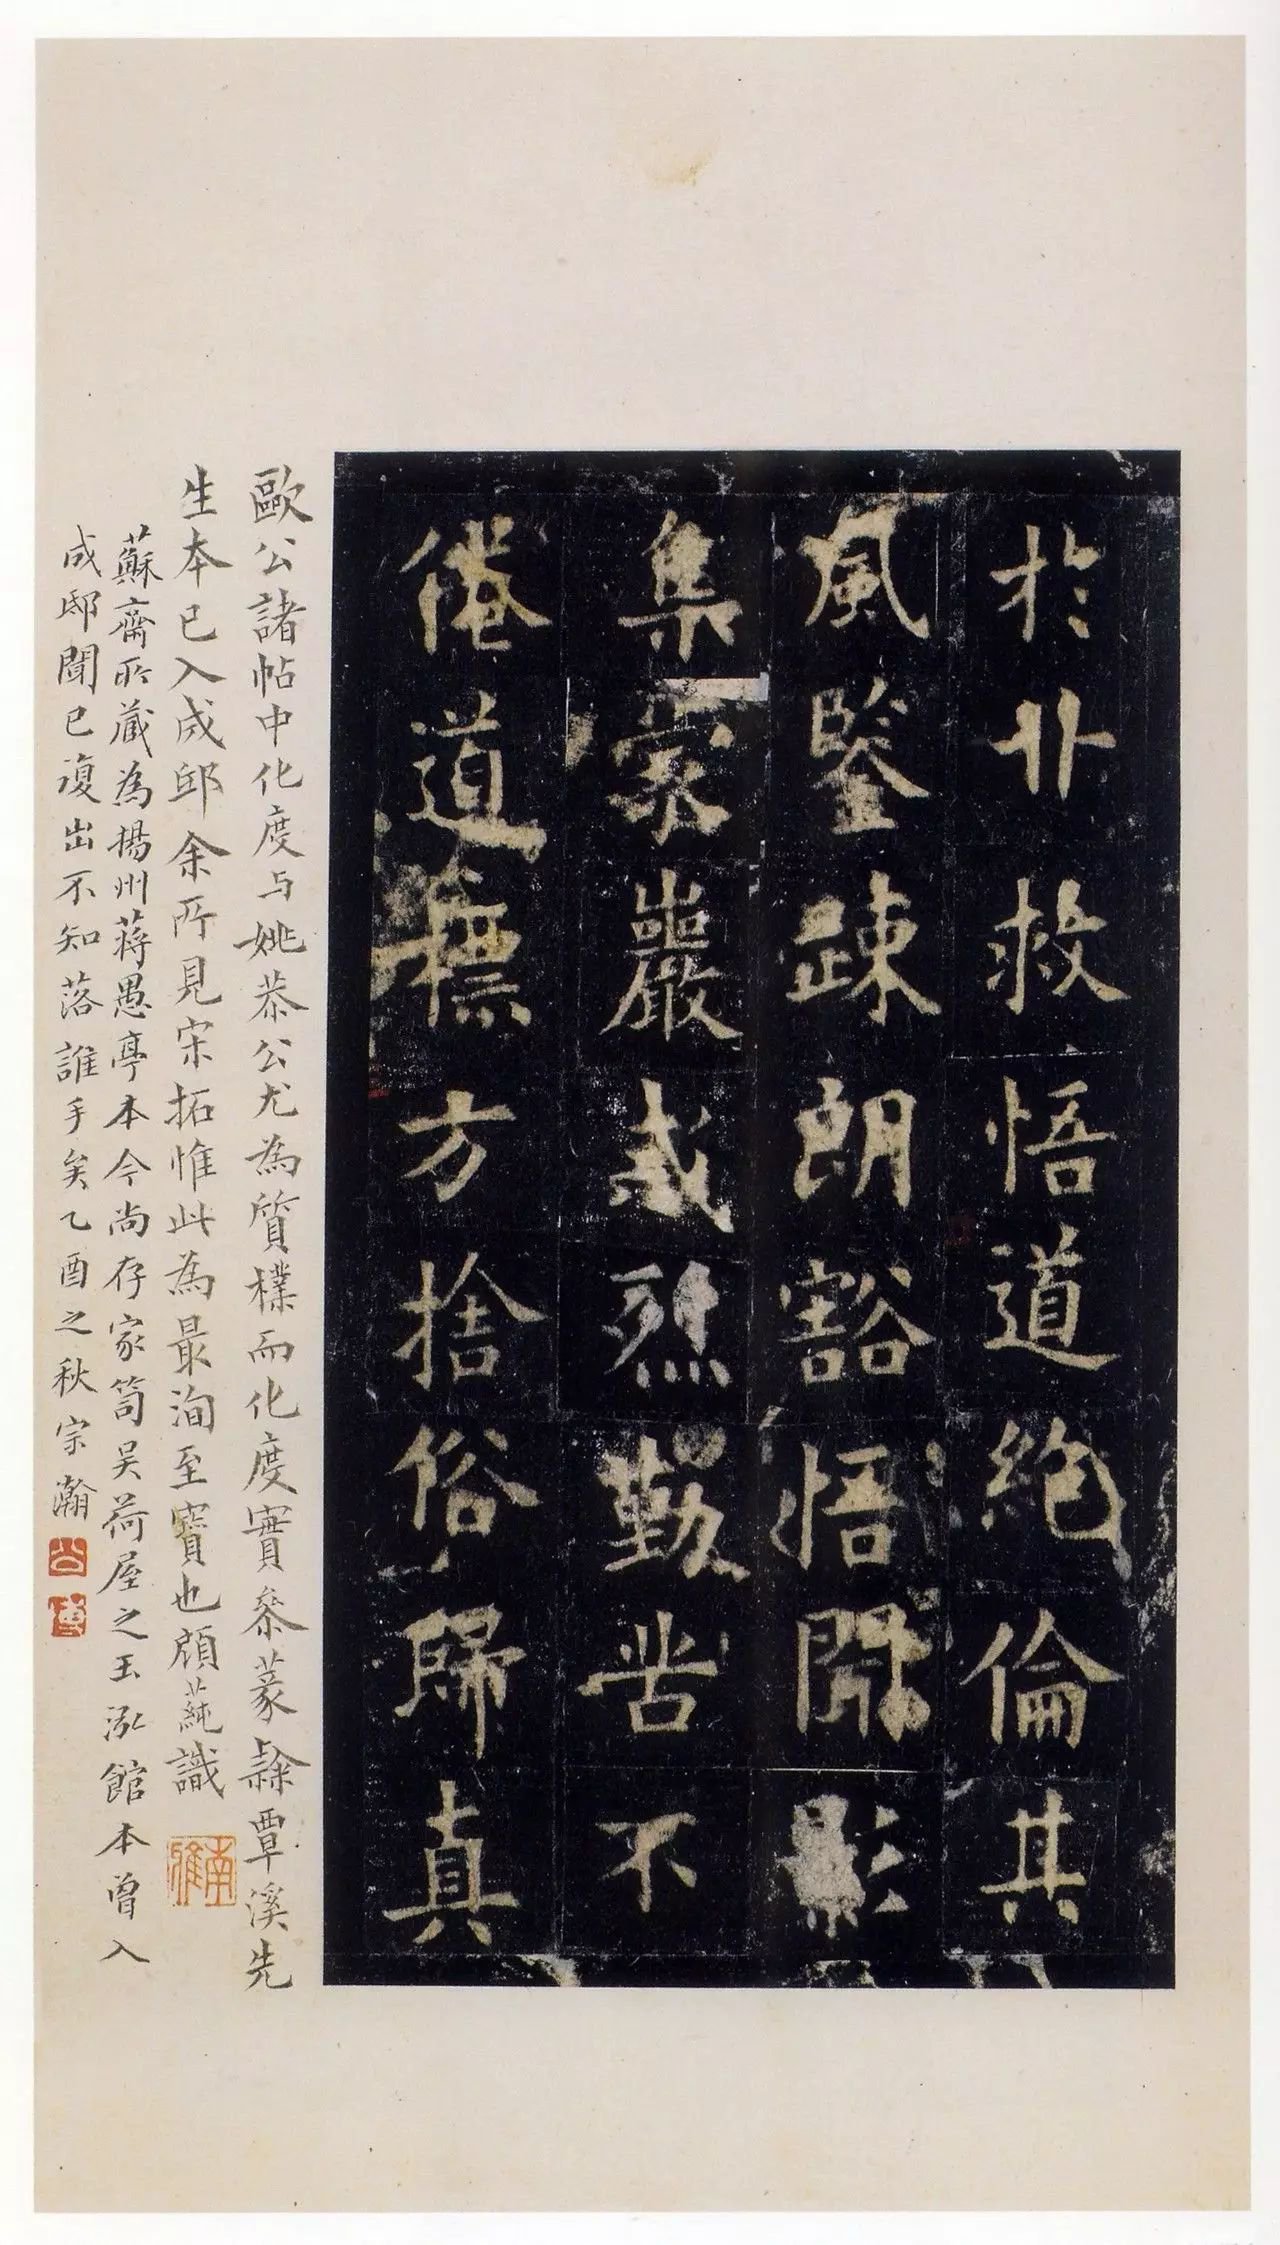 於卄救悟道絶倫其
風鑒疎朗豁悟聞影
集家嚴或烈勤苦不
倦道標方捨俗歸真
歐公諸帖中化度与姚恭公尤為質樸而化度實叅篆隸覃溪先
生本已入成邸余所見宋拓惟此為最洵至寳也顧蒓識
南雅
蘇齋所藏為揚州蔣愚亭本今尚存家笥吴荷屋之玉泓館本曽入
成邸聞已復出不知落誰手矣乙酉之秋宗瀚
公博